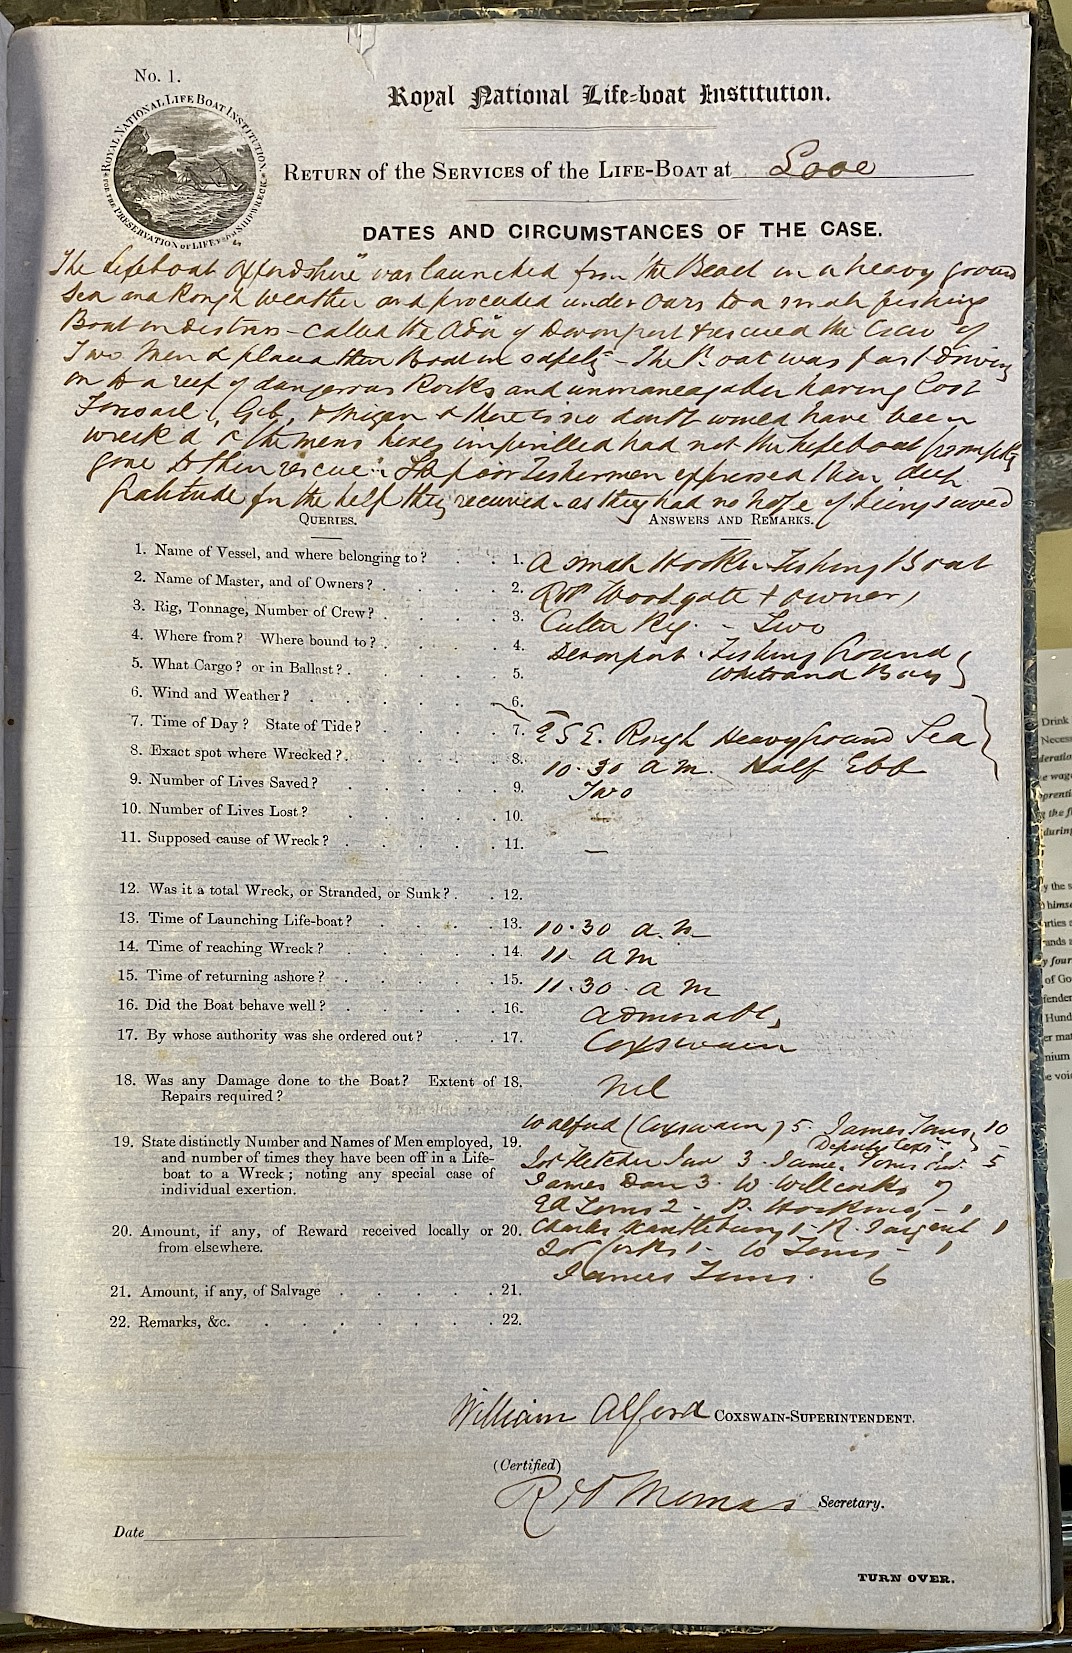 No. 1.
ROYAL NATIONAL LIFE BOAT INSTITUTION
FOR THE PRESERVATION OF LIFE FROM SHIPWRECK
Royal National Life-boat Institution.
RETURN of the SERVICES of the LIFE-BOAT at Looe
DATES AND CIRCUMSTANCES OF THE CASE.
The Lifeboat Oxfordshire" was launched from the Beach in a heavy ground
Sea and Rough weather and proceeded under Oars to a small fishing
Boat in distress - called the Ada of Devonport & rescued the Crew of
Two Men & placed their Boat in safety - The Boat was fast driving
on to a reef of dangerous Rocks and unmanageable having lost
Foresail, Gib, & Mizen & there is no doubt would have been
wreck'd & the mens lives imperilled had not the Lifeboat promptly
gone to their rescue. The poor Fishermen expressed their deep
gratitude for the help they received - as they had no hope of being saved
QUERIES.
ANSWERS AND REMARKS.
1. Name of Vessel, and where belonging to? 1. A small Hooker Fishing Boat
2. Name of Master, and of Owners? 2. Woodgate & owner
3. Rig, Tonnage, Number of Crew? 3. Cutter Rig. - Two
4. Where from? Where bound to? 4. Devonport. Fishing Ground
5. What Cargo? or in Ballast? 5. Whitsand Bay
6. Wind and Weather? 6.
7. Time of Day? State of Tide? 7. ESE. Rough Heavy ground Sea
8. Exact spot where Wrecked? 8. 10.30 am. Half Ebb
9. Number of Lives Saved? 9. Two
10. Number of Lives Lost? 10. —
11. Supposed cause of Wreck? 11. —
12. Was it a total Wreck, or Stranded, or Sunk? 12.
13. Time of Launching Life-boat? 13. 10.30 a.m
14. Time of reaching Wreck? 14. 11 am
15. Time of returning ashore? 15. 11.30. am
16. Did the Boat behave well? 16. Admirably
17. By whose authority was she ordered out? 17. Coxswain
18. Was any Damage done to the Boat? Extent of 18. Nil
Repairs required?
W Alford (Coxswain) 5. James Toms 10
19. State distinctly Number and Names of Men employed, 19. Deputy Coxn
and number of times they have been off in a Life- Jos Fletcher Junr 3. James Toms 5
boat to a Wreck; noting any special case of James Dan 3. W. Willcocks 7
individual exertion. Ed Toms 2 - Hosking - 1
20. Amount, if any, of Reward received locally or 20. Charles 1 - R. Sargent 1
from elsewhere. Jos 1 - W Toms - 1
James Toms. 6
21. Amount, if any, of Salvage 21.
22. Remarks, &c. 22.
William Alford COXSWAIN-SUPERINTENDENT.
(Certified)
Thomas Secretary.
Date
TURN OVER.
Drink